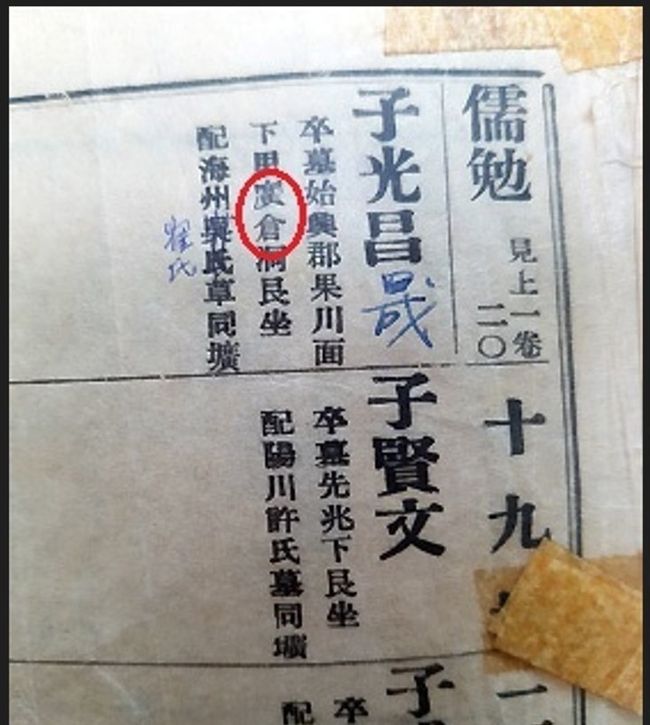 儒勉
見上一卷
二〇
子光昌
晟
卒墓始興郡果川面
下倉洞艮坐
配海州氏同壙
崔氏
十九
子賢文
卒墓先兆下艮坐
配陽川許氏墓同壙
子
卒
配